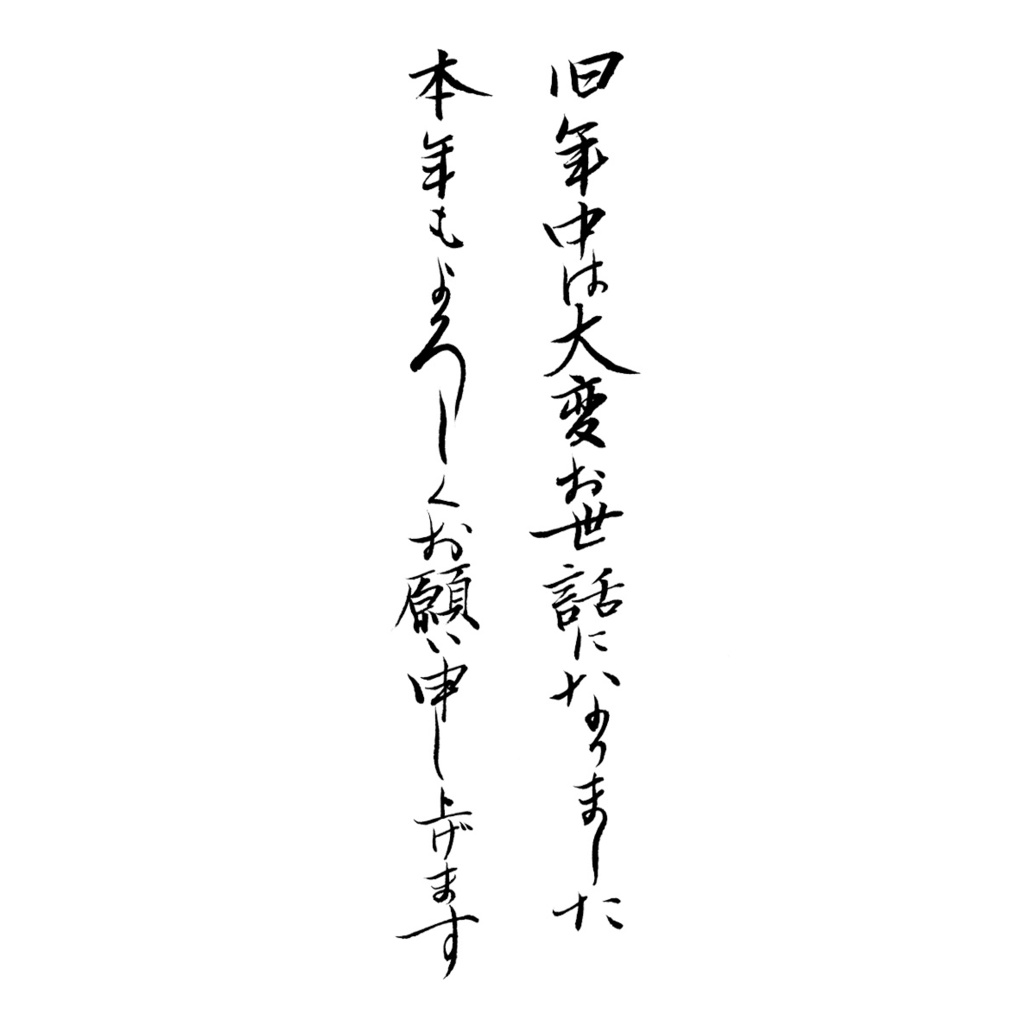 旧年中は大変お世話になりました
本年もよろしくお願い申し上げます